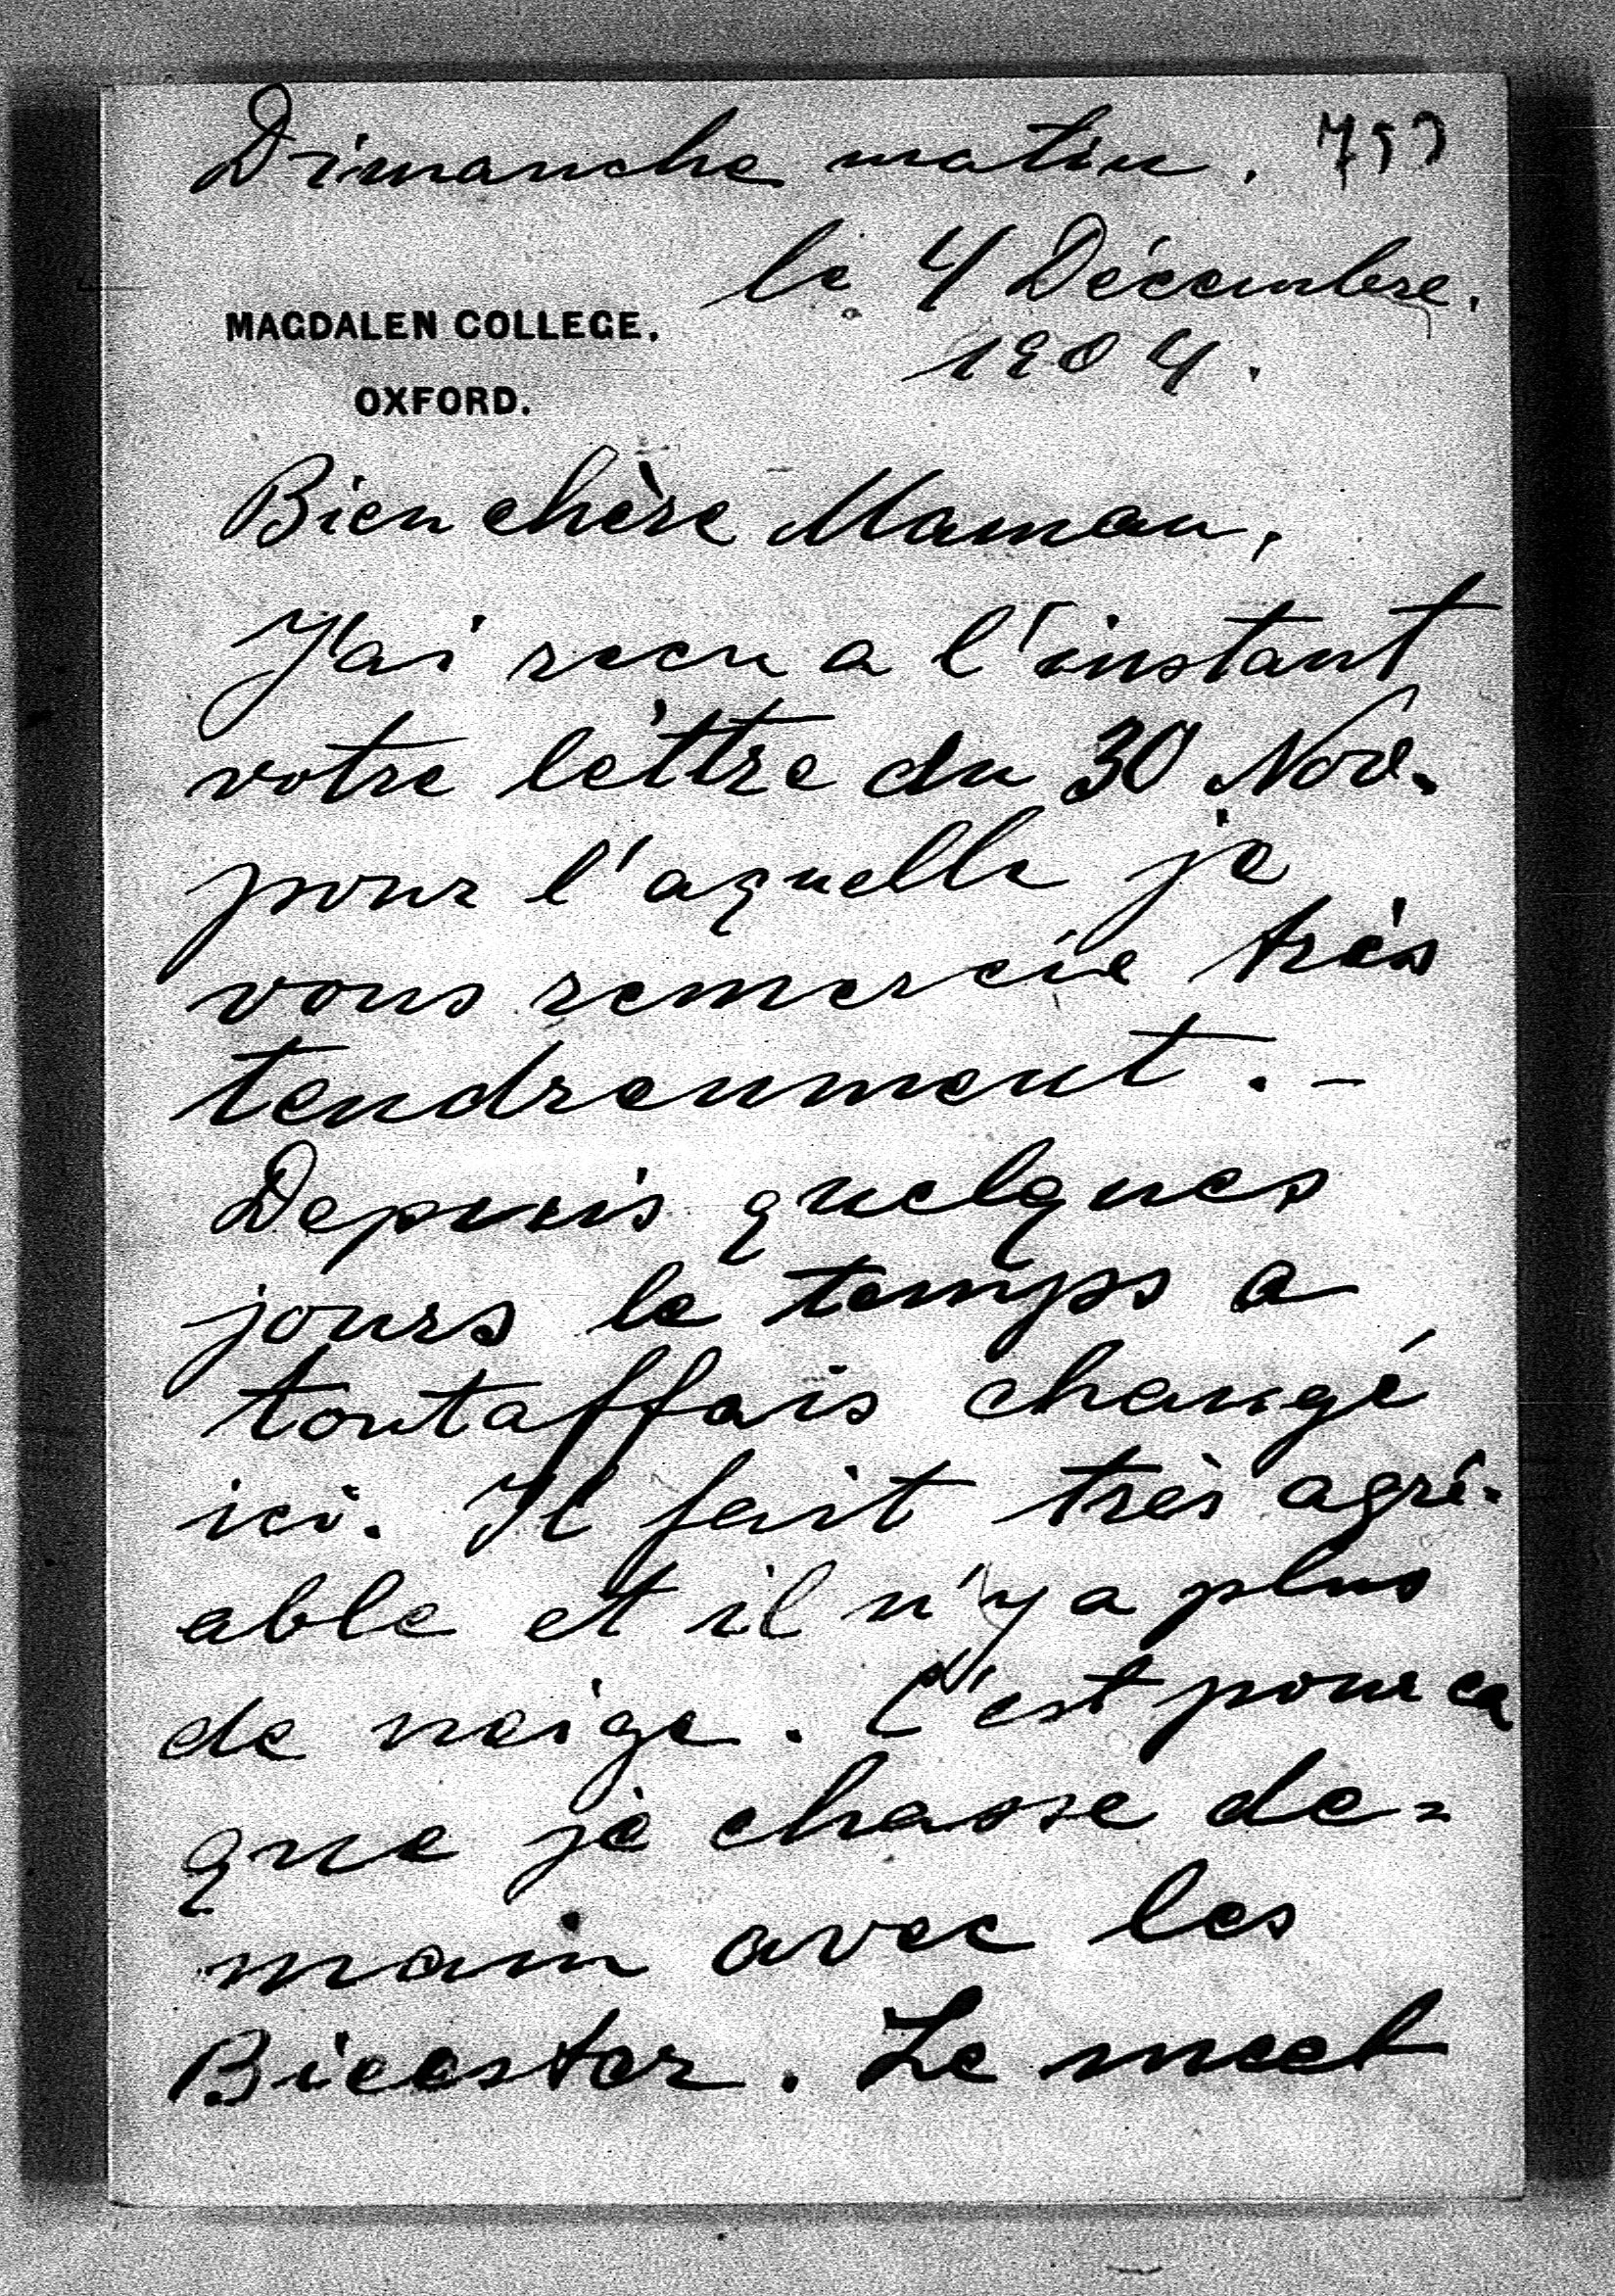 Dimanche matin.
le 4 Décembre.
1904.
MAGDALEN COLLEGE,
OXFORD.
Bien chère Maman,
J'ai recu a l'instant
votre lèttre du 30 Nov.
pour l'aquelle je
vous remercie très
tendrenment. –
Depuis quelques
jours le temps a
toutaffais changé
ici. Il fait très agré-
able et il n'y a plus
de neige. C'est pour ca
que je chasse de=
main avec les
Bicester. Le meet